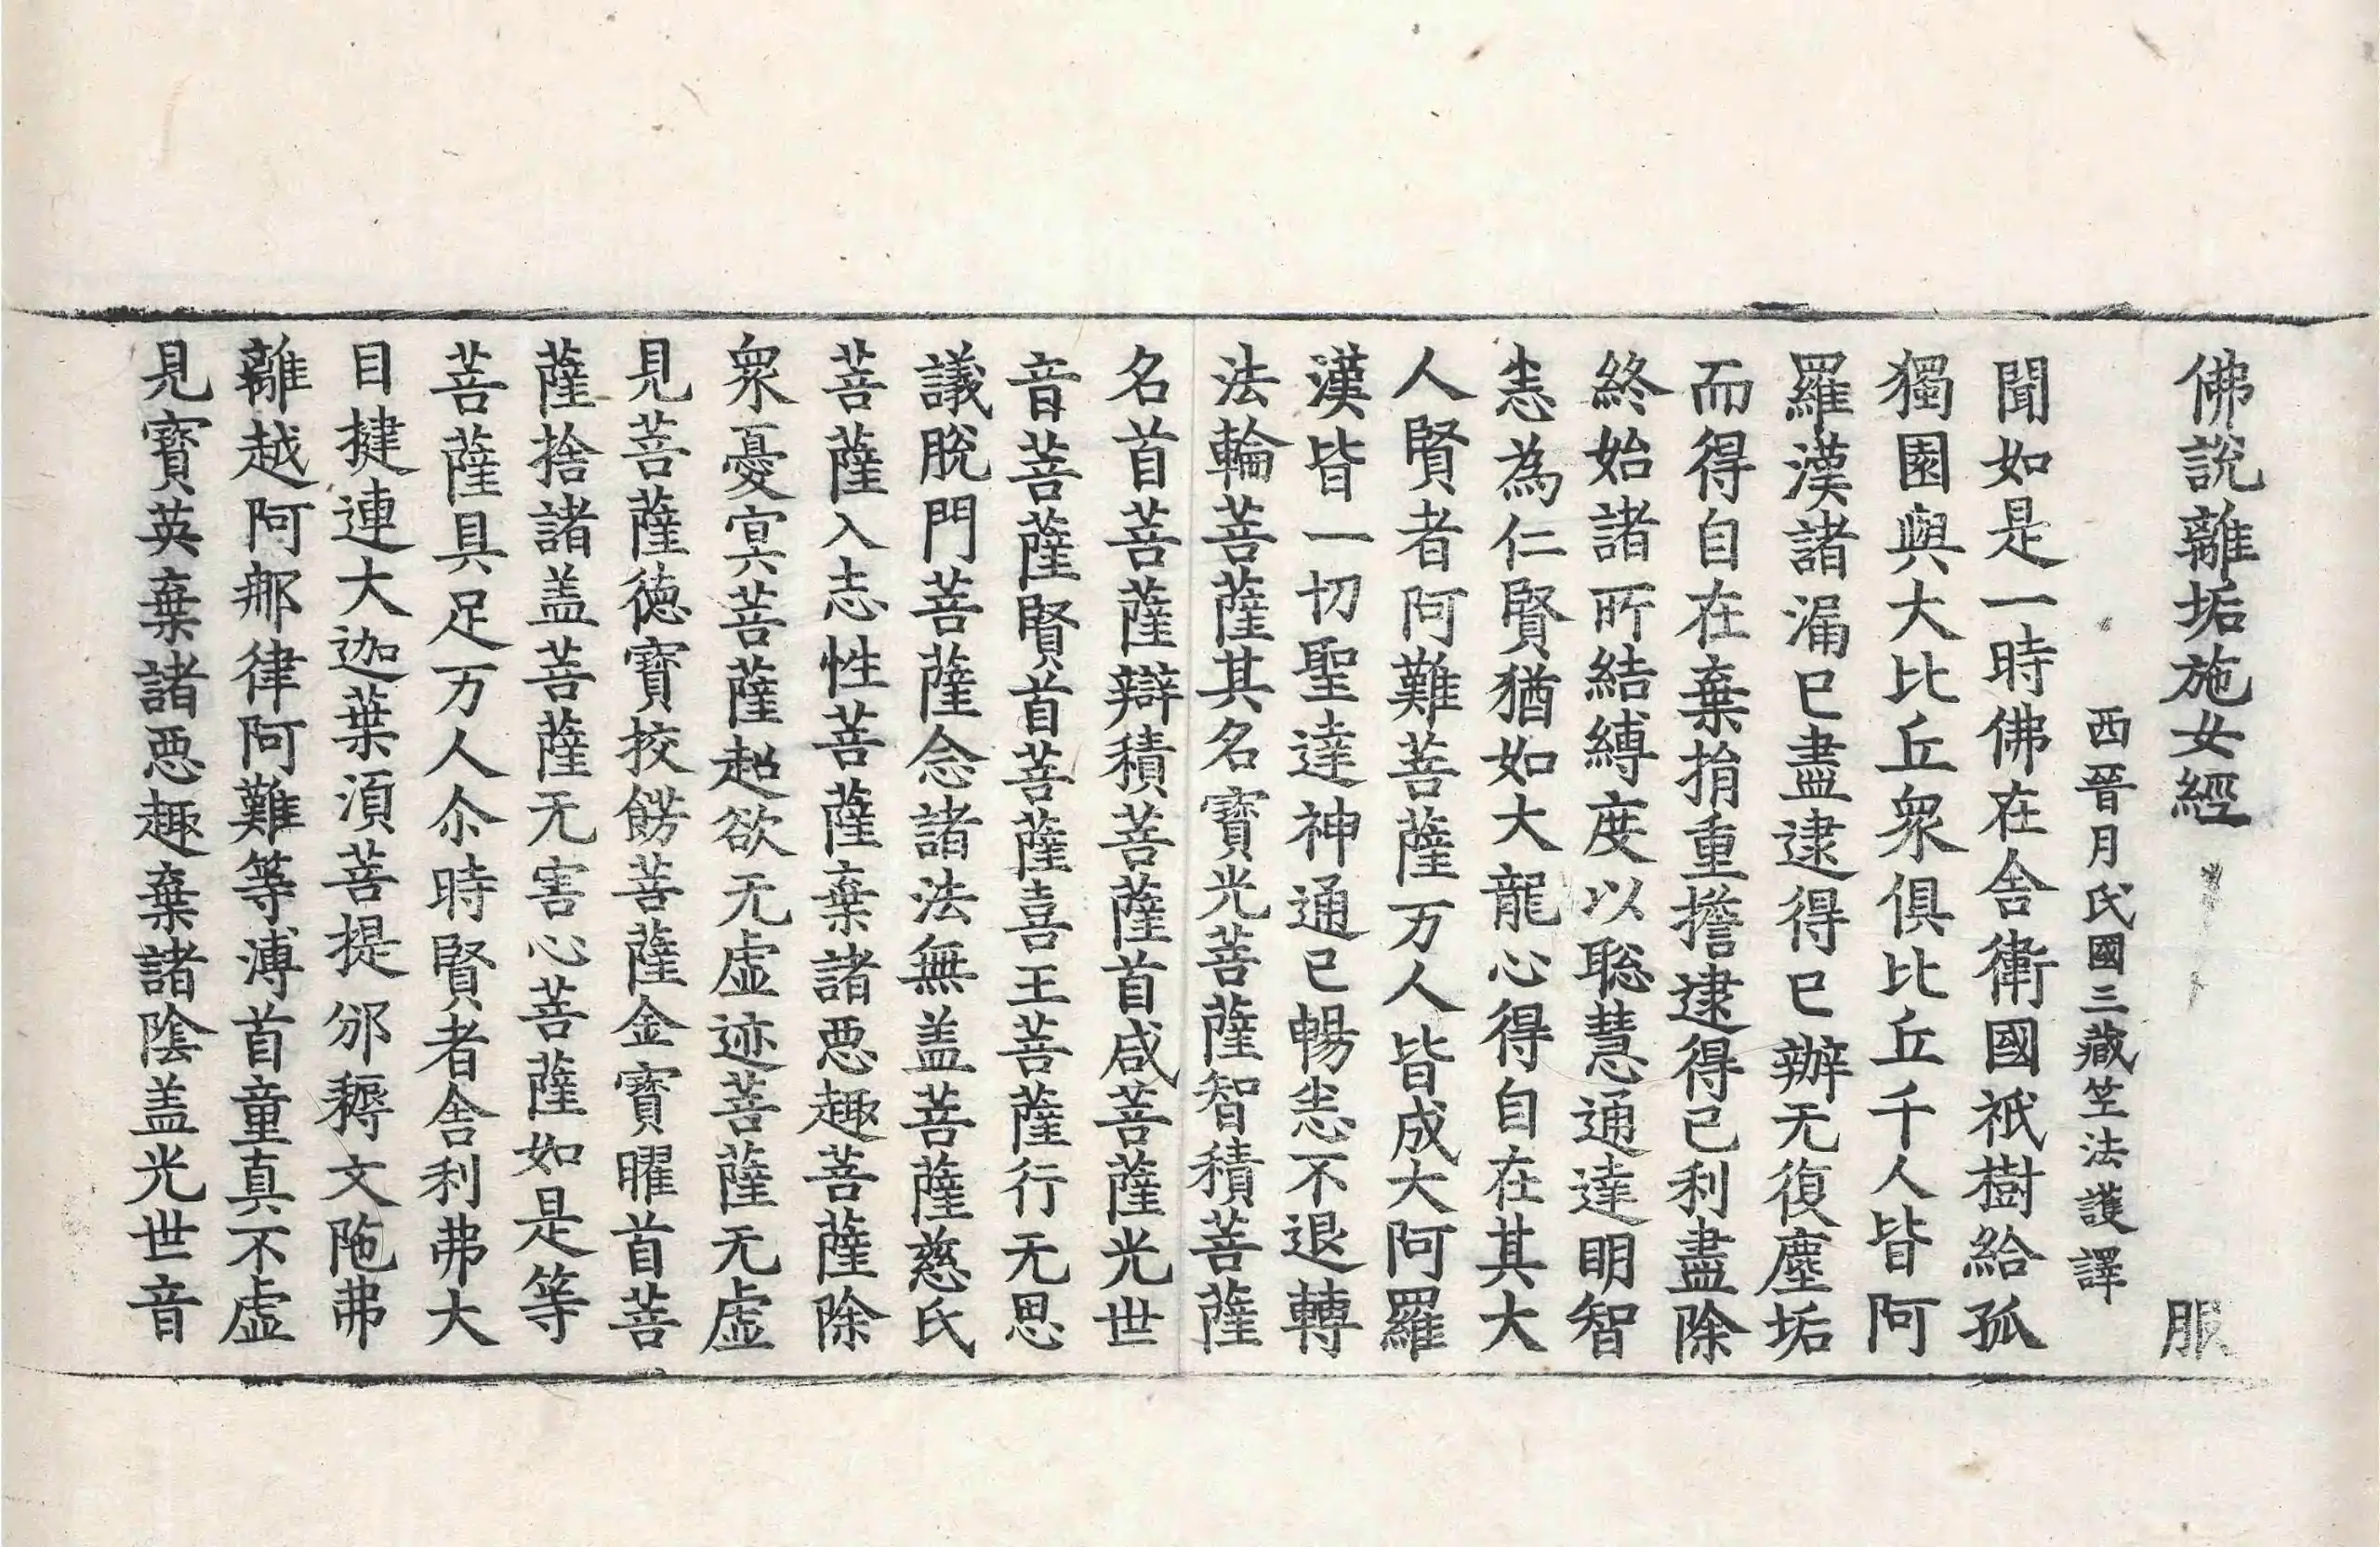 佛說離垢施女經 服
西晉月氏國三藏竺法護譯
聞如是一時佛在舍衛國祇樹給孤
獨園與大比丘眾俱比丘千人皆阿
羅漢諸漏已盡逮得已辦无復塵垢
而得自在棄捐重擔逮得己利盡除
終始諸所結縛度以聡慧通達明智
恚為仁賢猶如大龍心得自在其大
人賢者阿難菩薩万人皆成大阿羅
漢皆一切聖達神通已暢恚不退轉
法輪菩薩其名寶光菩薩智積菩薩
名首菩薩辯積菩薩首咸菩薩光世
音菩薩賢首菩薩喜王菩薩行无思
議脫門菩薩念諸法無盖菩薩慈氏
菩薩入志性菩薩棄諸惡趣菩薩除
眾憂冥菩薩超欲无虛迹菩薩无虛
見菩薩德寶挍餝菩薩金寶曜首菩
薩捨諸盖菩薩无害心菩薩如是等
菩薩具足万人尒時賢者舍利弗大
目揵連大迦葉湏菩提邠耨文陁弗
離越阿那律阿難等溥首童真不虛
見寶英棄諸惡趣棄諸陰盖光世音